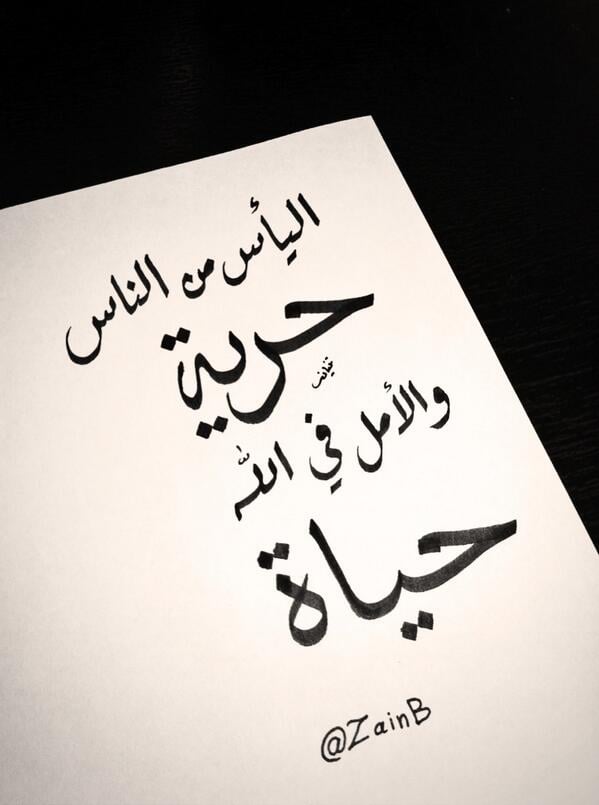 اليأس من الناس
حرية
والأمل في الله
حياة
@ZainB